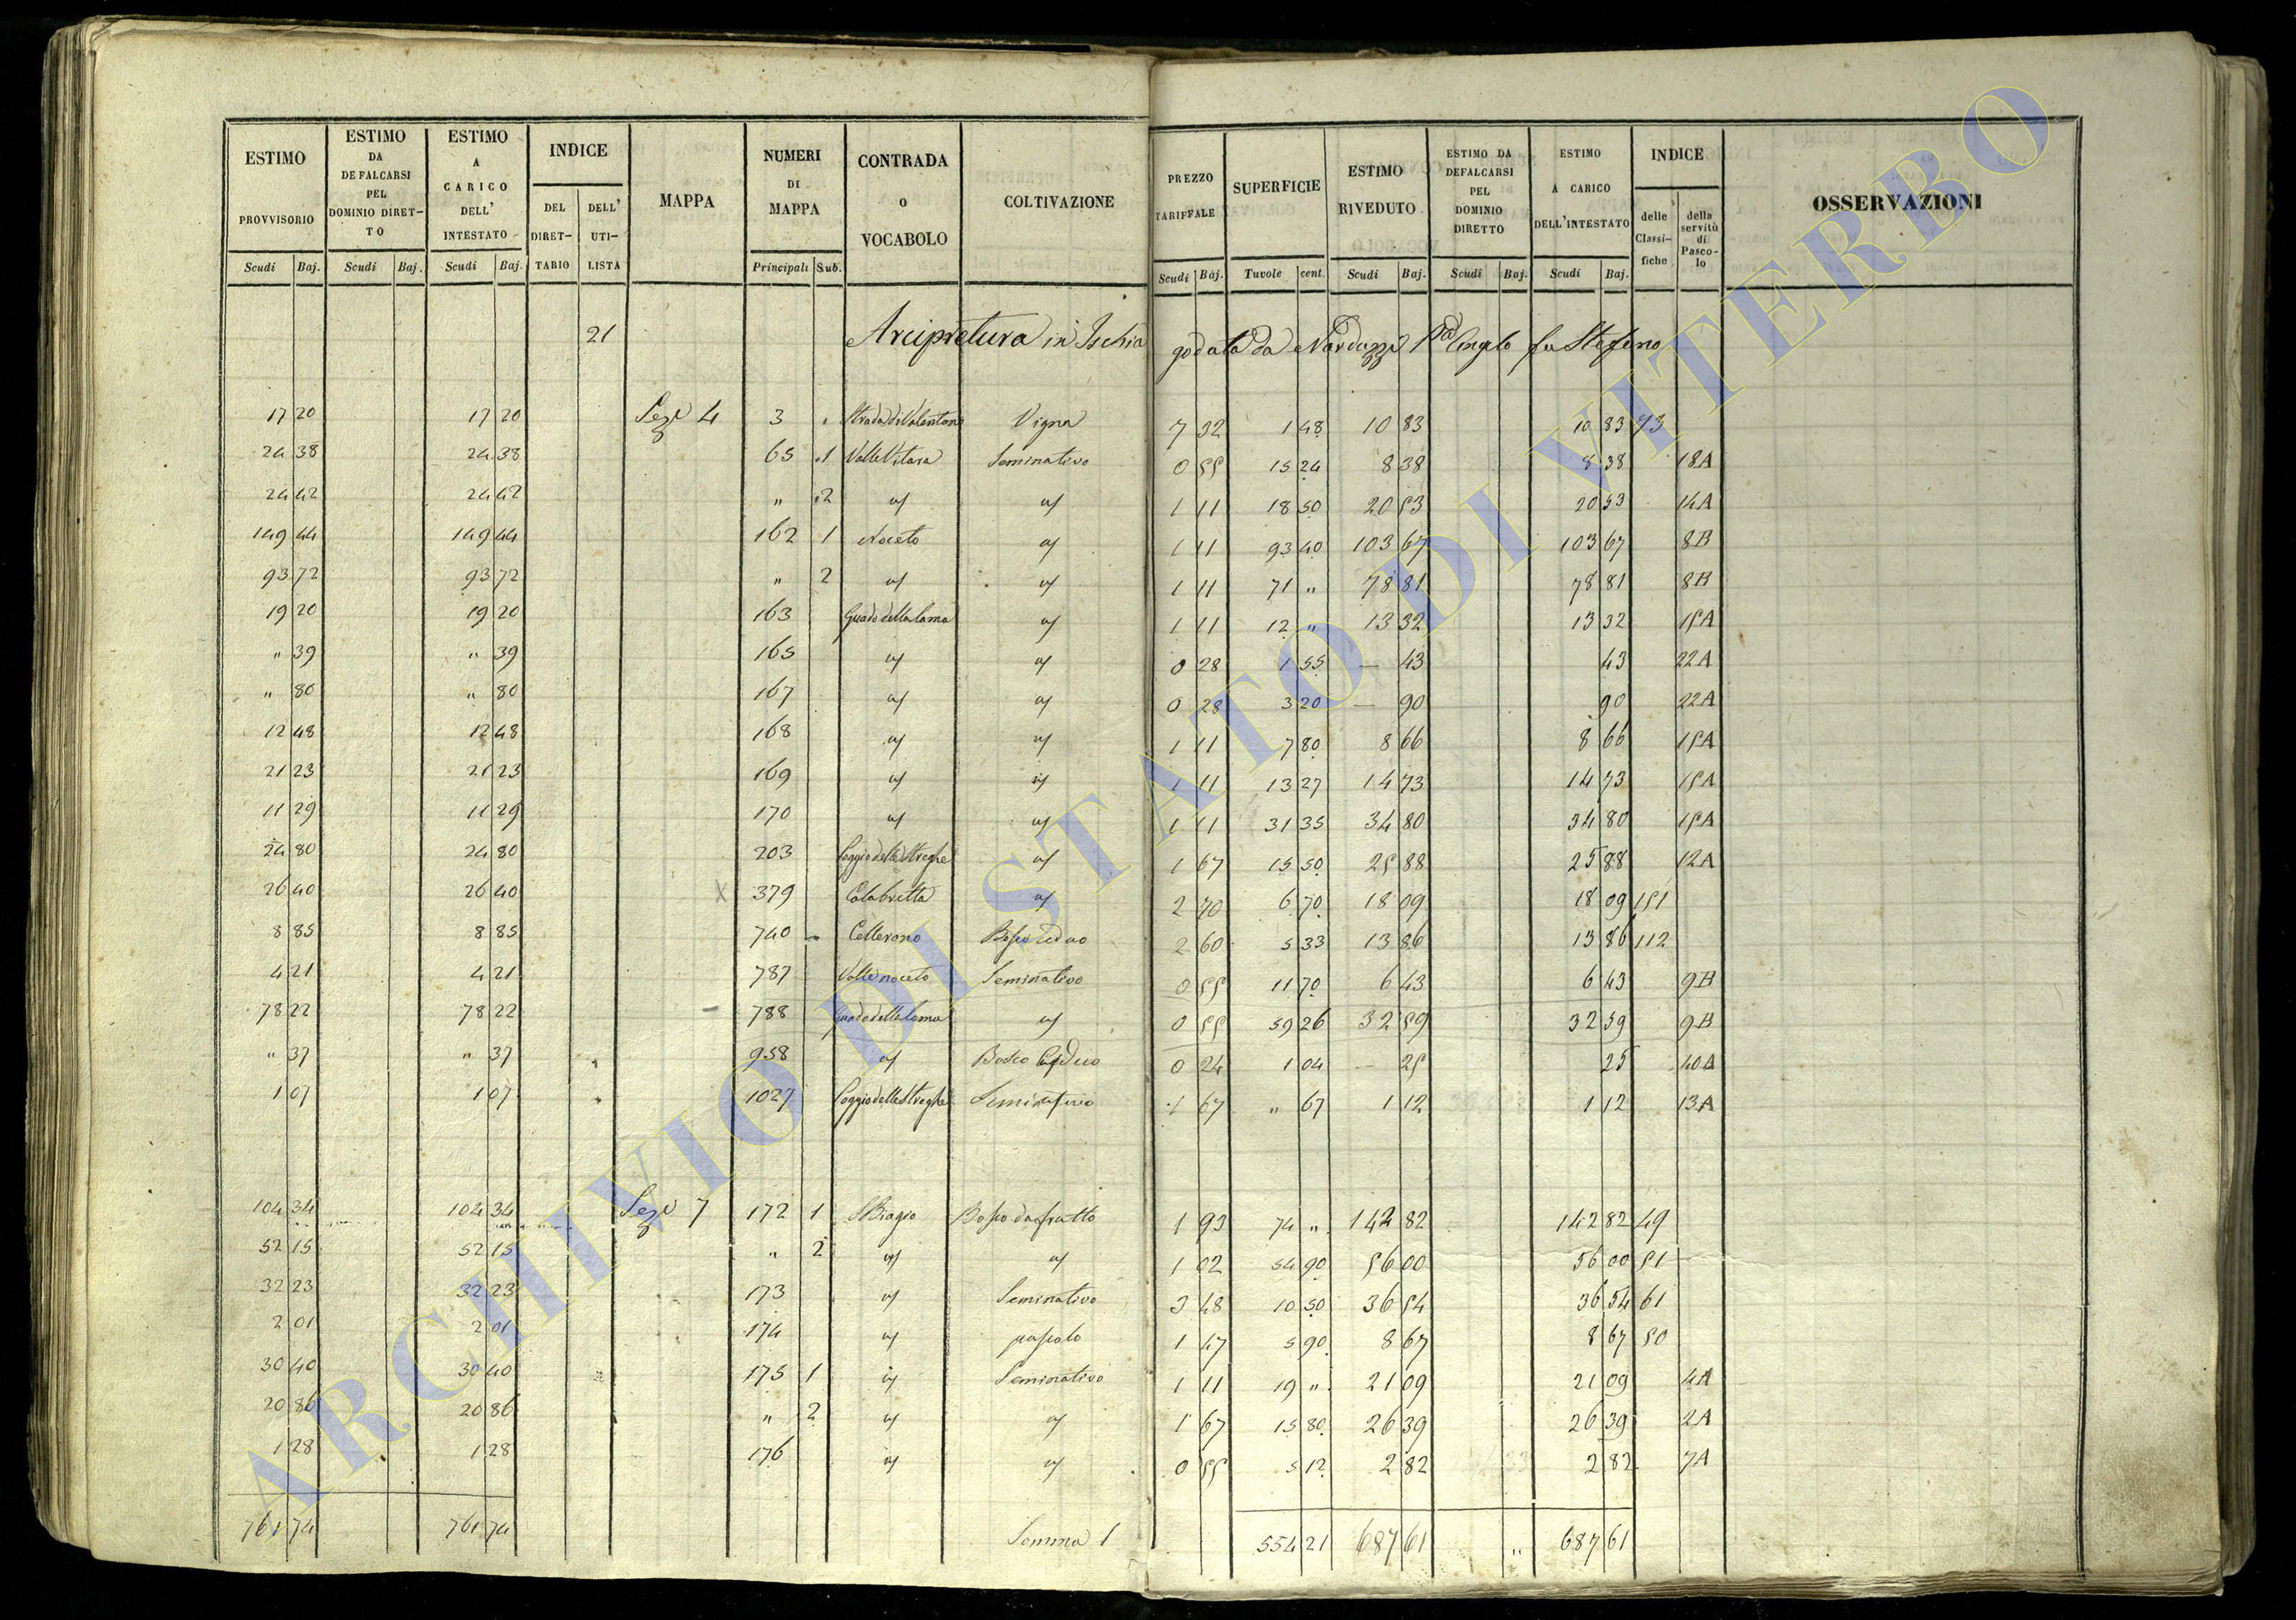 ESTIMO PROVVISORIO | ESTIMO DA DEFALCARSI PEL DOMINIO DIRETTO | ESTIMO A CARICO DELL' INTESTATO | INDICE DEL DIRETTARIO | DELL' UTILISTA | MAPPA | NUMERI DI MAPPA | CONTRADA O VOCABOLO | COLTIVAZIONE | PREZZO TARIFFALE | SUPERFICIE | ESTIMO RIVEDUTO | ESTIMO DA DEFALCARSI PEL DOMINIO DIRETTO | ESTIMO A CARICO DELL'INTESTATO | INDICE delle Classifiche | della servitù di Pascolo | OSSERVAZIONI
Scudi Baj. | Scudi Baj. | Scudi Baj. | Principali Sub. | Scudi Baj. | Tavole cent. | Scudi Baj. | Scudi Baj. | Scudi Baj.
21 Arcipretura in Ischia godata da Narduzzi Angelo fu Stefano
17 20 | 17 20 | Sez. 4 | 3 | Strada di Valentano | Vigna | 7 32 | 1 48 | 10 83 | 10 83 | 73
24 38 | 24 38 | 65 1 | Valle Vitara | Seminativo | 0 55 | 15 24 | 8 38 | 8 38 | 18A
24 42 | 24 42 | " 2 | 1 11 | 18 50 | 20 53 | 20 53 | 14A
149 44 | 149 44 | 162 1 | Noceto | 1 11 | 93 40 | 103 67 | 103 67 | 8B
93 72 | 93 72 | " 2 | 1 11 | 71 " | 78 81 | 78 81 | 8B
19 20 | 19 20 | 163 | Guado della lama | 1 11 | 12 " | 13 32 | 13 32 | 15A
" 39 | " 39 | 165 | 0 28 | 1 55 | — 43 | 43 | 22A
" 80 | " 80 | 167 | 0 28 | 3 20 | — 90 | 90 | 22A
12 48 | 12 48 | 168 | 1 11 | 7 80 | 8 66 | 8 66 | 15A
21 23 | 21 23 | 169 | 1 11 | 13 27 | 14 73 | 14 73 | 15A
11 29 | 11 29 | 170 | 1 11 | 31 35 | 34 80 | 34 80 | 15A
24 80 | 24 80 | 203 | Poggio delle Streghe | 1 67 | 15 50 | 25 88 | 25 88 | 12A
26 40 | 26 40 | X 379 | Calabretta | 2 70 | 6 70 | 18 09 | 18 09 | 151
8 85 | 8 85 | 740 | Cellerano | Bosco ceduo | 2 60 | 5 33 | 13 86 | 13 86 | 112
4 21 | 4 21 | 787 | Valle noceto | Seminativo | 0 55 | 11 70 | 6 43 | 6 43 | 9B
78 22 | 78 22 | 788 | Guado della lama | 0 55 | 59 26 | 32 59 | 32 59 | 9B
" 37 | " 37 | 958 | Bosco Ceduo | 0 24 | 1 04 | — 25 | 25 | 40A
1 07 | 1 07 | 1027 | Poggio delle Streghe | Seminativo | 1 67 | " 67 | 1 12 | 1 12 | 13A
104 34 | 104 34 | Sez. 7 | 172 1 | S Biagio | Bosco da frutto | 1 93 | 74 " | 142 82 | 142 82 | 49
52 15 | 52 15 | " 2 | 1 02 | 54 90 | 56 00 | 56 00 | 51
32 23 | 32 23 | 173 | Seminativo | 3 48 | 10 50 | 36 54 | 36 54 | 61
2 01 | 2 01 | 174 | pascolo | 1 47 | 5 90 | 8 67 | 8 67 | 50
30 40 | 30 40 | 175 1 | Seminativo | 1 11 | 19 " | 21 09 | 21 09 | 4A
20 86 | 20 86 | " 2 | 1 67 | 15 80 | 26 39 | 26 39 | 2A
1 28 | 1 28 | 176 | 0 55 | 5 12 | 2 82 | 2 82 | 7A
761 74 | 761 74 | Somma 1 | 554 21 | 687 61 | " | 687 61
ARCHIVIO DI STATO DI VITERBO